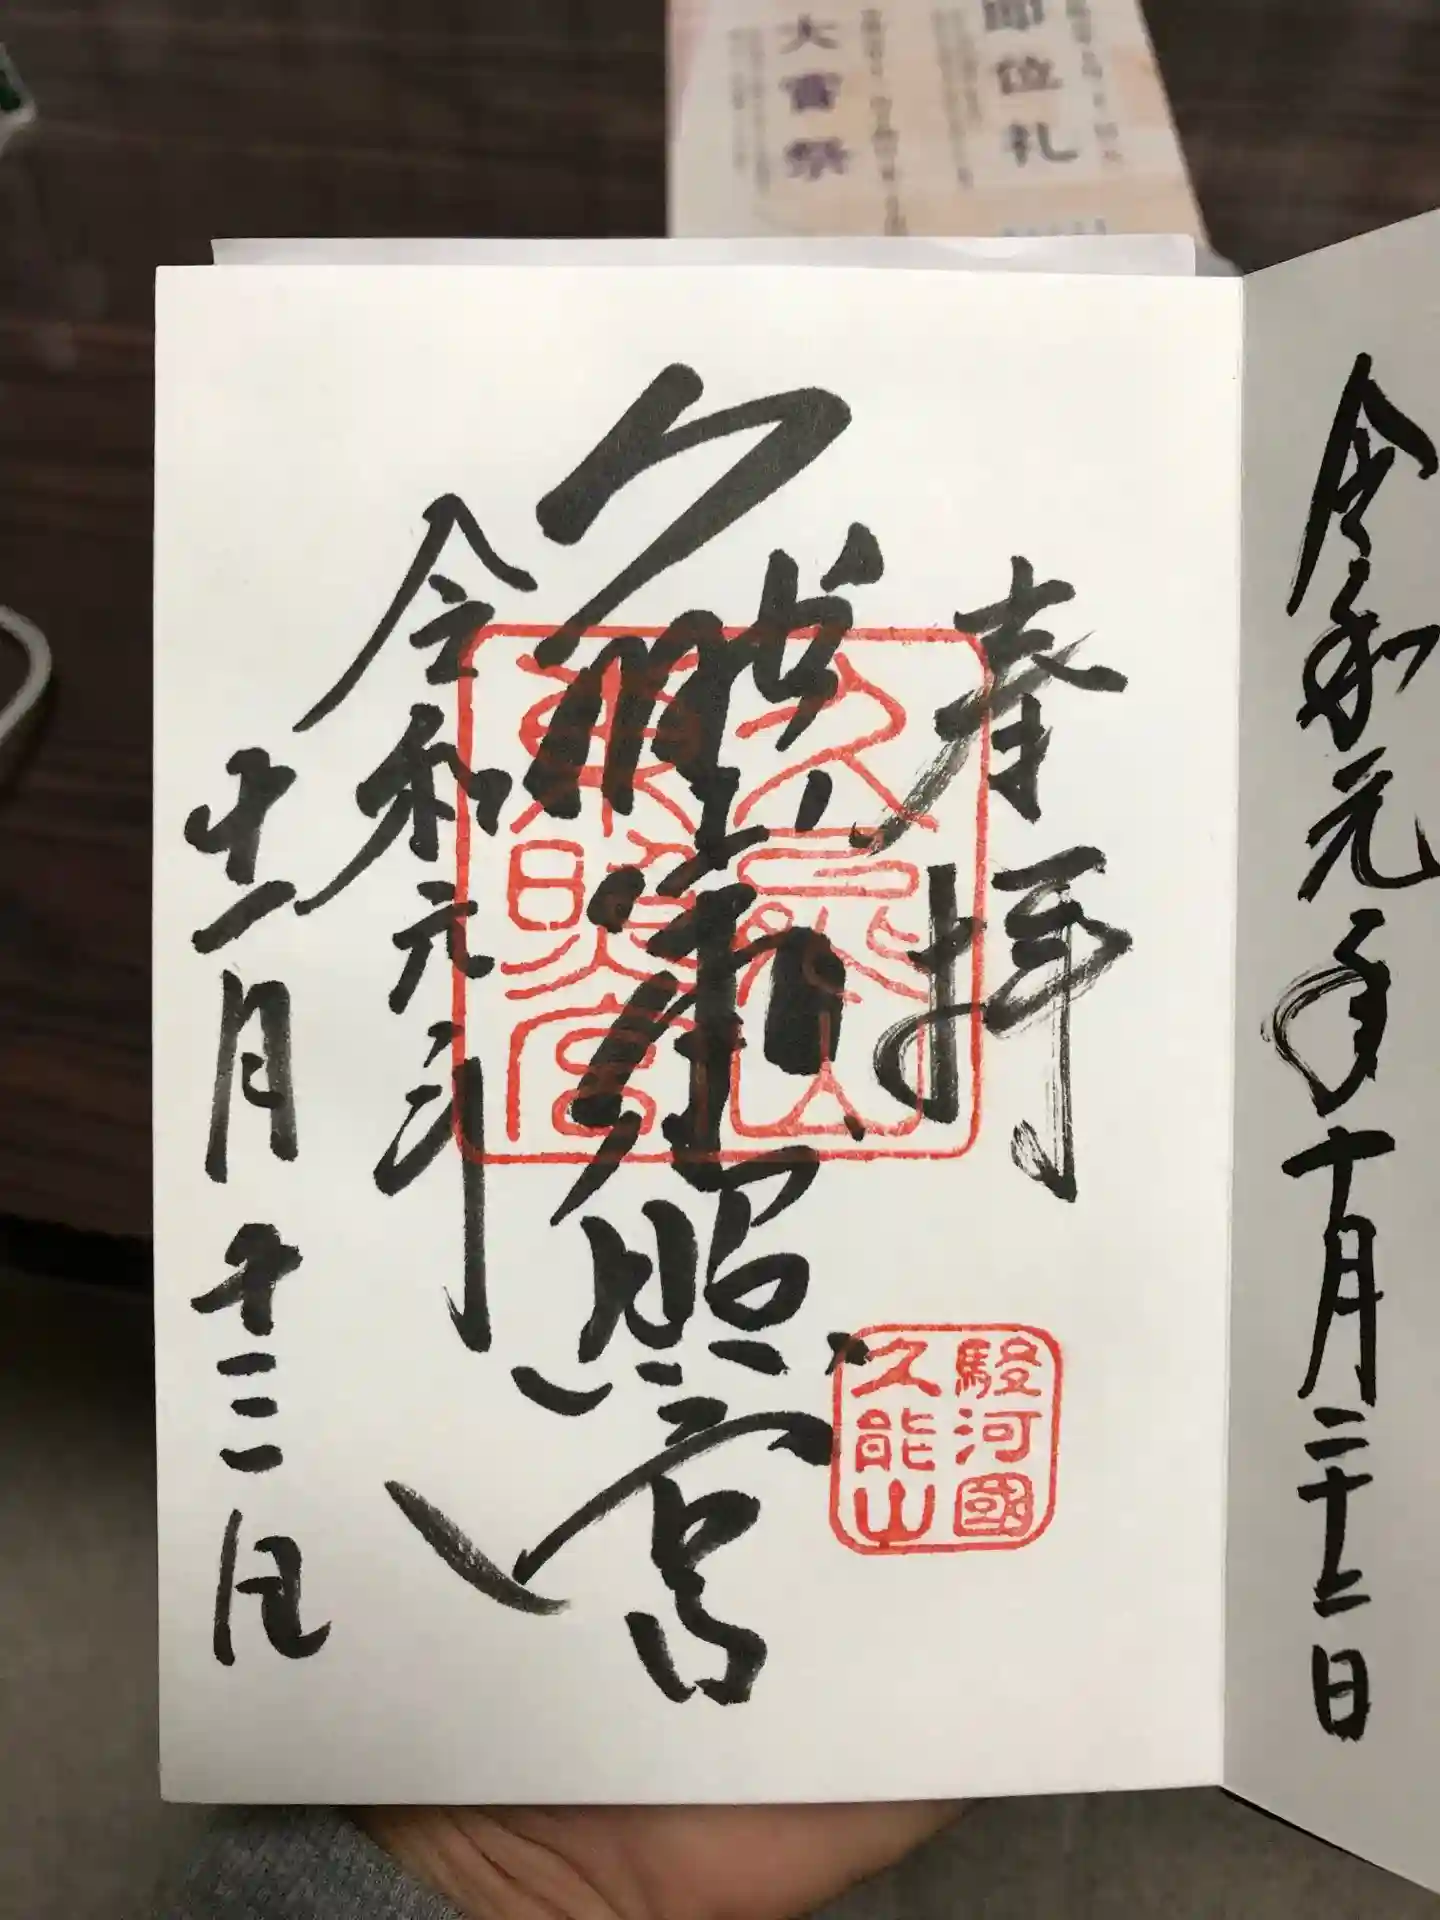 即位礼
大嘗祭
令和元年十月二十二日
奉拝
久能山東照宮
令和元年
十一月十三日
久能山
東照宮
駿河國
久能山